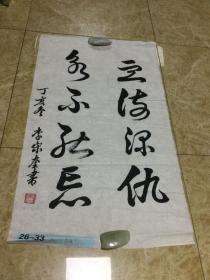 血海深仇
永不能忘
丁亥冬 李宗 书
26-33